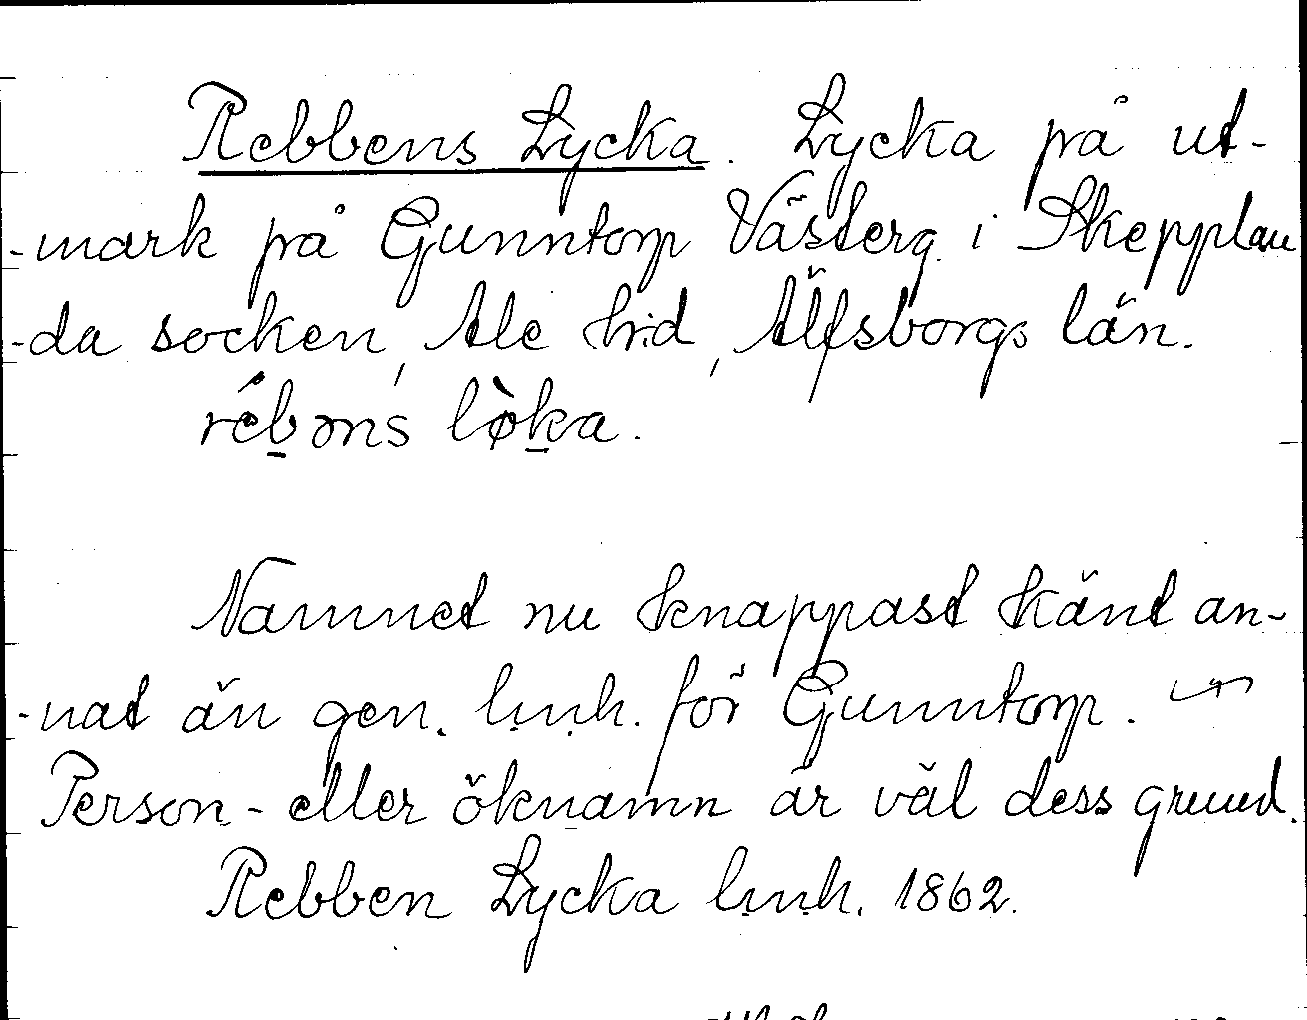 Rebbens Lycka. Lycka på ut-
-mark på Gunntorp Västerg. i Skepplan
-da socken, Ale hrd, Älfsborgs län.
rébəns lø̀ka.
Namnet nu knappast känt an-
-nat än gen. l.n.h. för Gunntorp.
Person- eller öknamn är väl dess grund.
Rebben Lycka l.n.h. 1862.